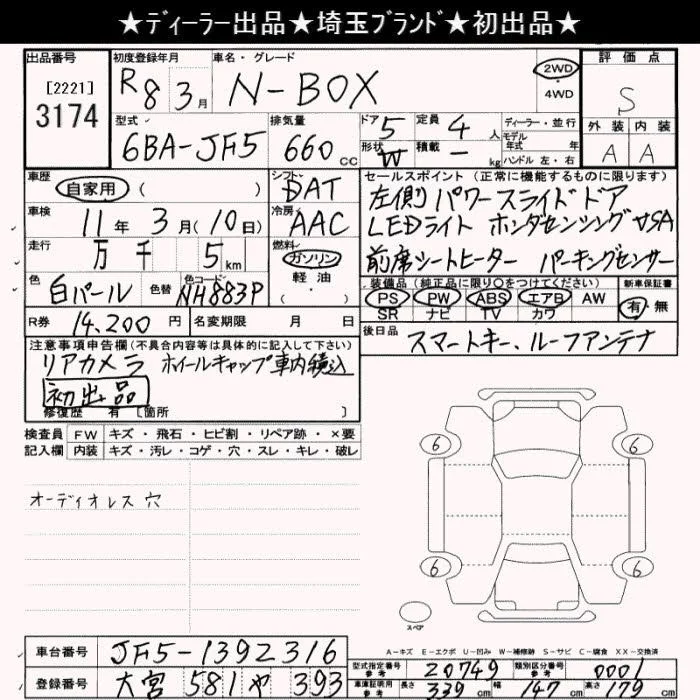 ★ディーラー出品★埼玉ブランド★初出品★
出品番号 初度登録年月 車名・グレード 評価点
[2221] R8年3月 N-BOX 2WD S
3174 ・ 4WD
型式 排気量 ドア 定員 ディーラー・並行 外装 内装
6BA-JF5 660cc 5 4人 モデル年式 年 A A
形状 W 積載 ー kg ハンドル 左・右
車歴 シフト セールスポイント(正常に機能するものに限ります)
自家用 ( ) DAT 左側パワースライドドア
車検 11年3月(10日) 冷房 AAC LEDライト ホンダセンシング USA
走行 万 千 5km 燃料 ガソリン 前席シートヒーター パーキングセンサー
軽油
色 色替 色コード ( ・ ) 装備品(純正品に限り○をつけてください) 新車保証書
白パール NH883P PS PW ABS エアB AW 有・無
SR ナビ TV カワ
R券 14,200円 名変期限 月 日 後日品 スマートキー、ルーフアンテナ
注意事項申告欄(不具合内容等は具体的に記入して下さい)
リアカメラ ホイールキャップ車内積込
初出品
修復歴 有 [箇所 ]
検査員 FW キズ・飛石・ヒビ割・リペア跡・×要
記入欄 内装 キズ・汚レ・コゲ・穴・スレ・キレ・破レ
オーディオレス穴
6 6
6 6
スペア
A-キズ E-エクボ U-凹み W-補修跡 S-サビ C-腐食 XX-交換済
車台番号 JF5-1392316 型式指定番号 参考 20749 類別区分番号 参考 0001
登録番号 大宮 581 や 393 車庫証明用 参考 長さ 339cm 幅 147cm 高さ 179cm